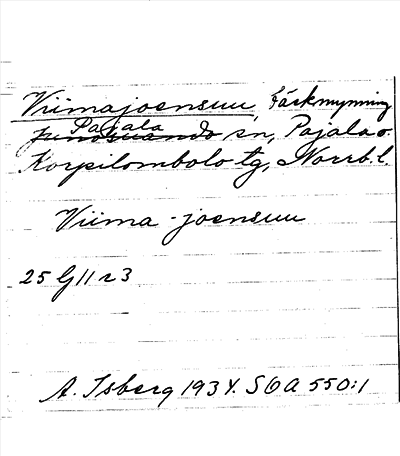 Viimajoensuu, bäckmynning
Pajala
Junosuando sn, Pajala o.
Korpilombolo tg, Norrb. l.
Viima-joensuu
25 G 11 r 3
A. Isberg 1934. SOA 550:1